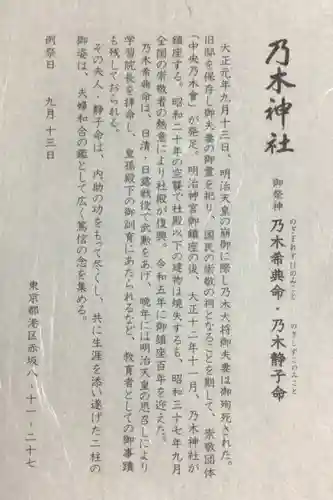 乃木神社
御祭神 乃木希典命・乃木静子命
のぎまれすけのみこと
のぎしずこのみこと
大正元年九月十三日、明治天皇の崩御に際し乃木大将御夫妻は御殉死された。
旧邸を保存し御夫妻の御霊を祀り、国民の崇敬の祠となることを期して、崇敬団体
「中央乃木會」が発足。明治神宮御鎮座の後、大正十二年十一月、乃木神社が
鎮座する。昭和二十年の空襲で社殿以下の建物は焼失するも、昭和三十七年九月
全国の崇敬者の熱意により社殿が復興。令和五年に御鎮座百年を迎えた。
乃木希典命は、日清・日露戦役で武勲をあげ、晩年には明治天皇の思召しにより
学習院長を拝命し、皇孫殿下の御訓育にあたられるなど、教育者としての御事蹟
も残しておられる。
その夫人・静子命は、内助の功をもって尽くし、共に生涯を添い遂げた二柱の
御姿は、夫婦和合の鑑として広く篤信の念を集める。
例祭日 九月十三日
東京都港区赤坂八ー十一ー二十七